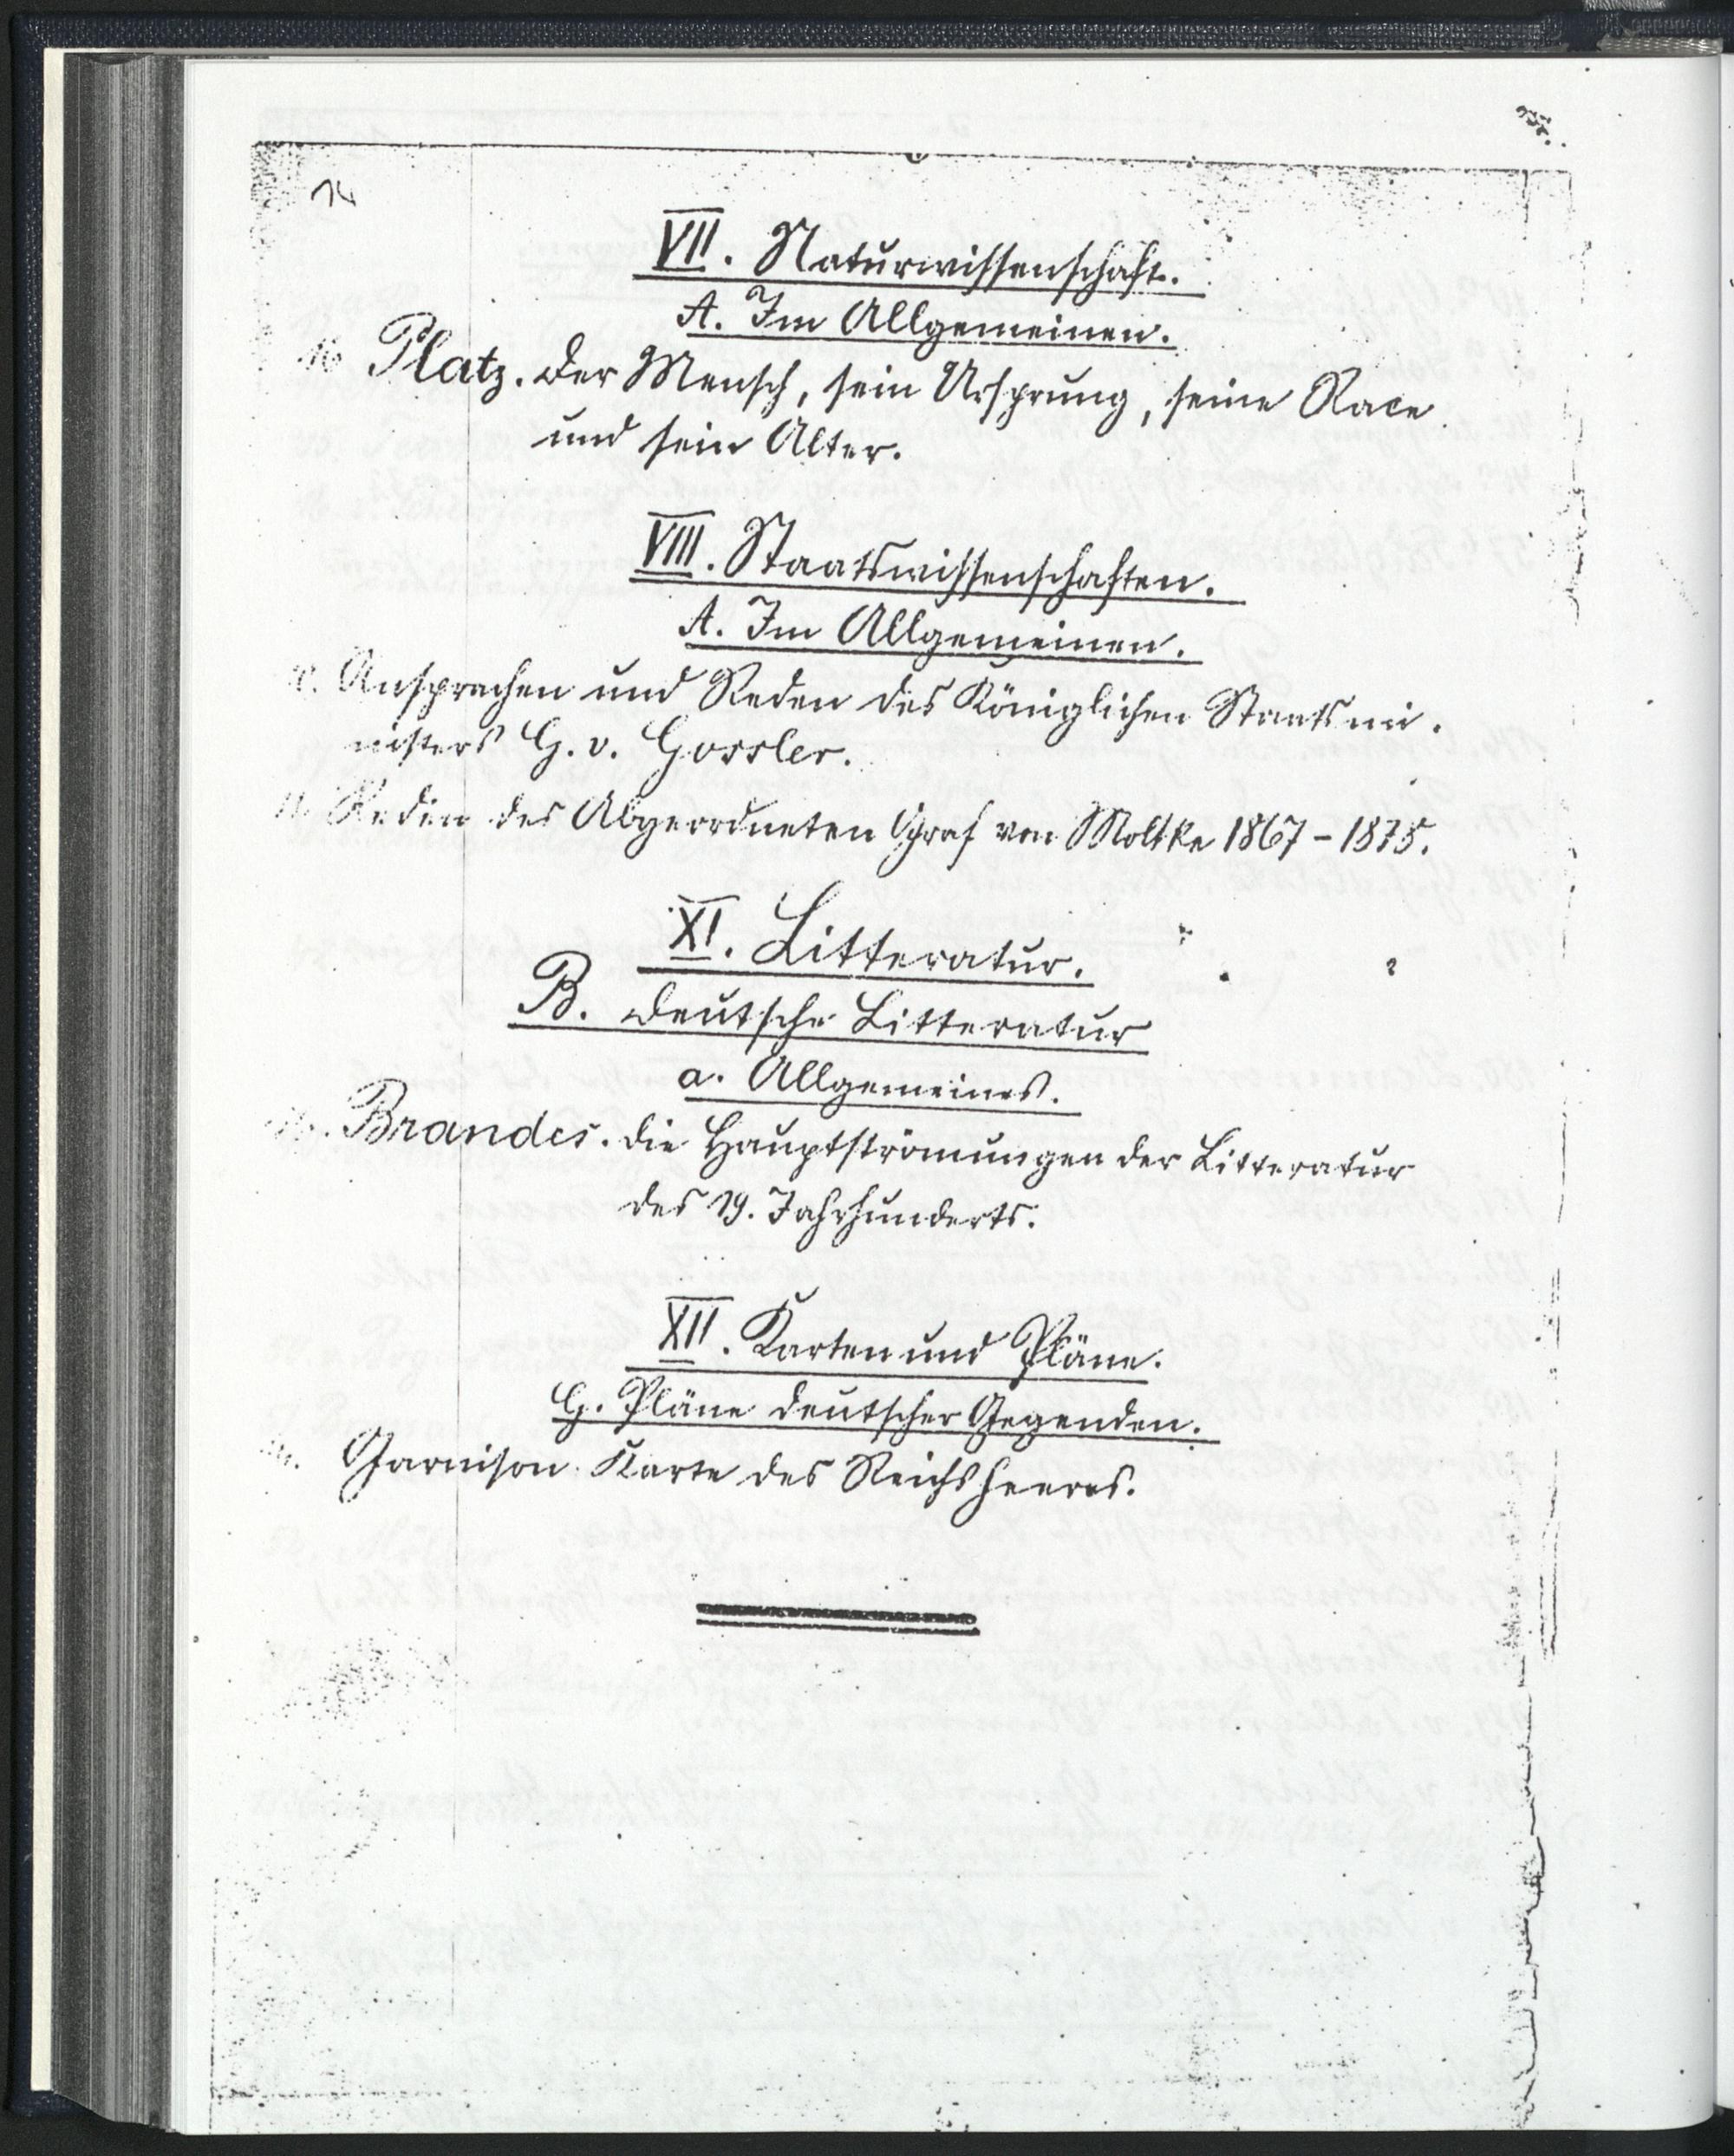 14
VII. Naturwissenschaft.
A. Im Allgemeinen.
Platz. Der Mensch, sein Ursprung, seine Race
und sein Alter.
VIII. Staatswissenschaften.
A. Im Allgemeinen.
Ansprachen und Reden des Königlichen Staatsmi-
nisters G. v. Gossler.
Reden des Abgeordneten Graf von Moltke 1867-1878.
XI. Litteratur.
B. Deutsche Litteratur
a. Allgemeines.
Brandes. Die Hauptströmungen der Litteratur
des 19. Jahrhunderts.
XII. Karten und Pläne.
G. Pläne deutscher Gegenden.
Garnison-Karte des Reichsheeres.